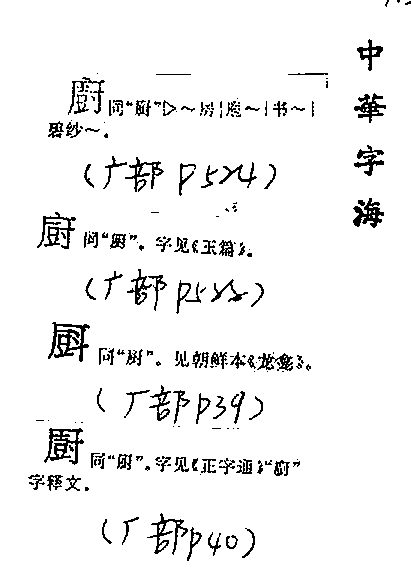 中華字海
廚 同“厨”▷～房|庖～|书～|
碧纱～。
(广部 P524)
廚 同“厨”。字见《玉篇》。
(广部 P522)
同“厨”。见朝鲜本《龙龛》。
(厂部 P39)
同“厨”。字见《正字通》“廚”
字释文。
(厂部 P40)